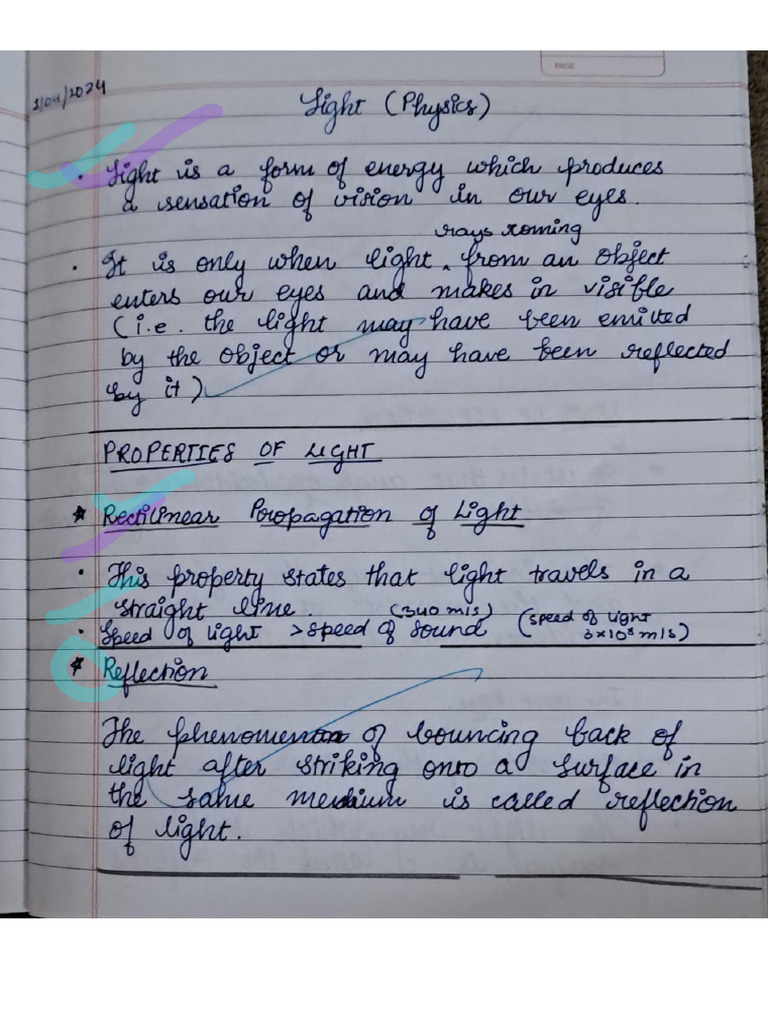 PAGE
2024
Light (Physics)
• Light is a form of energy which produces
a sensation of vision in our eyes.
rays coming
• It is only when light ‸ from an object
enters our eyes and makes in visible
(i.e. the light may have been emitted
by the object or may have been reflected
by it)
PROPERTIES OF LIGHT
* Rectilinear Propagation of Light
• This property states that light travels in a
straight line.
• Speed of light > speed of sound (340 m/s) (speed of light
3×10⁸ m/s)
* Reflection
The phenomenon of bouncing back of
light after striking onto a surface in
the same medium is called reflection
of light.